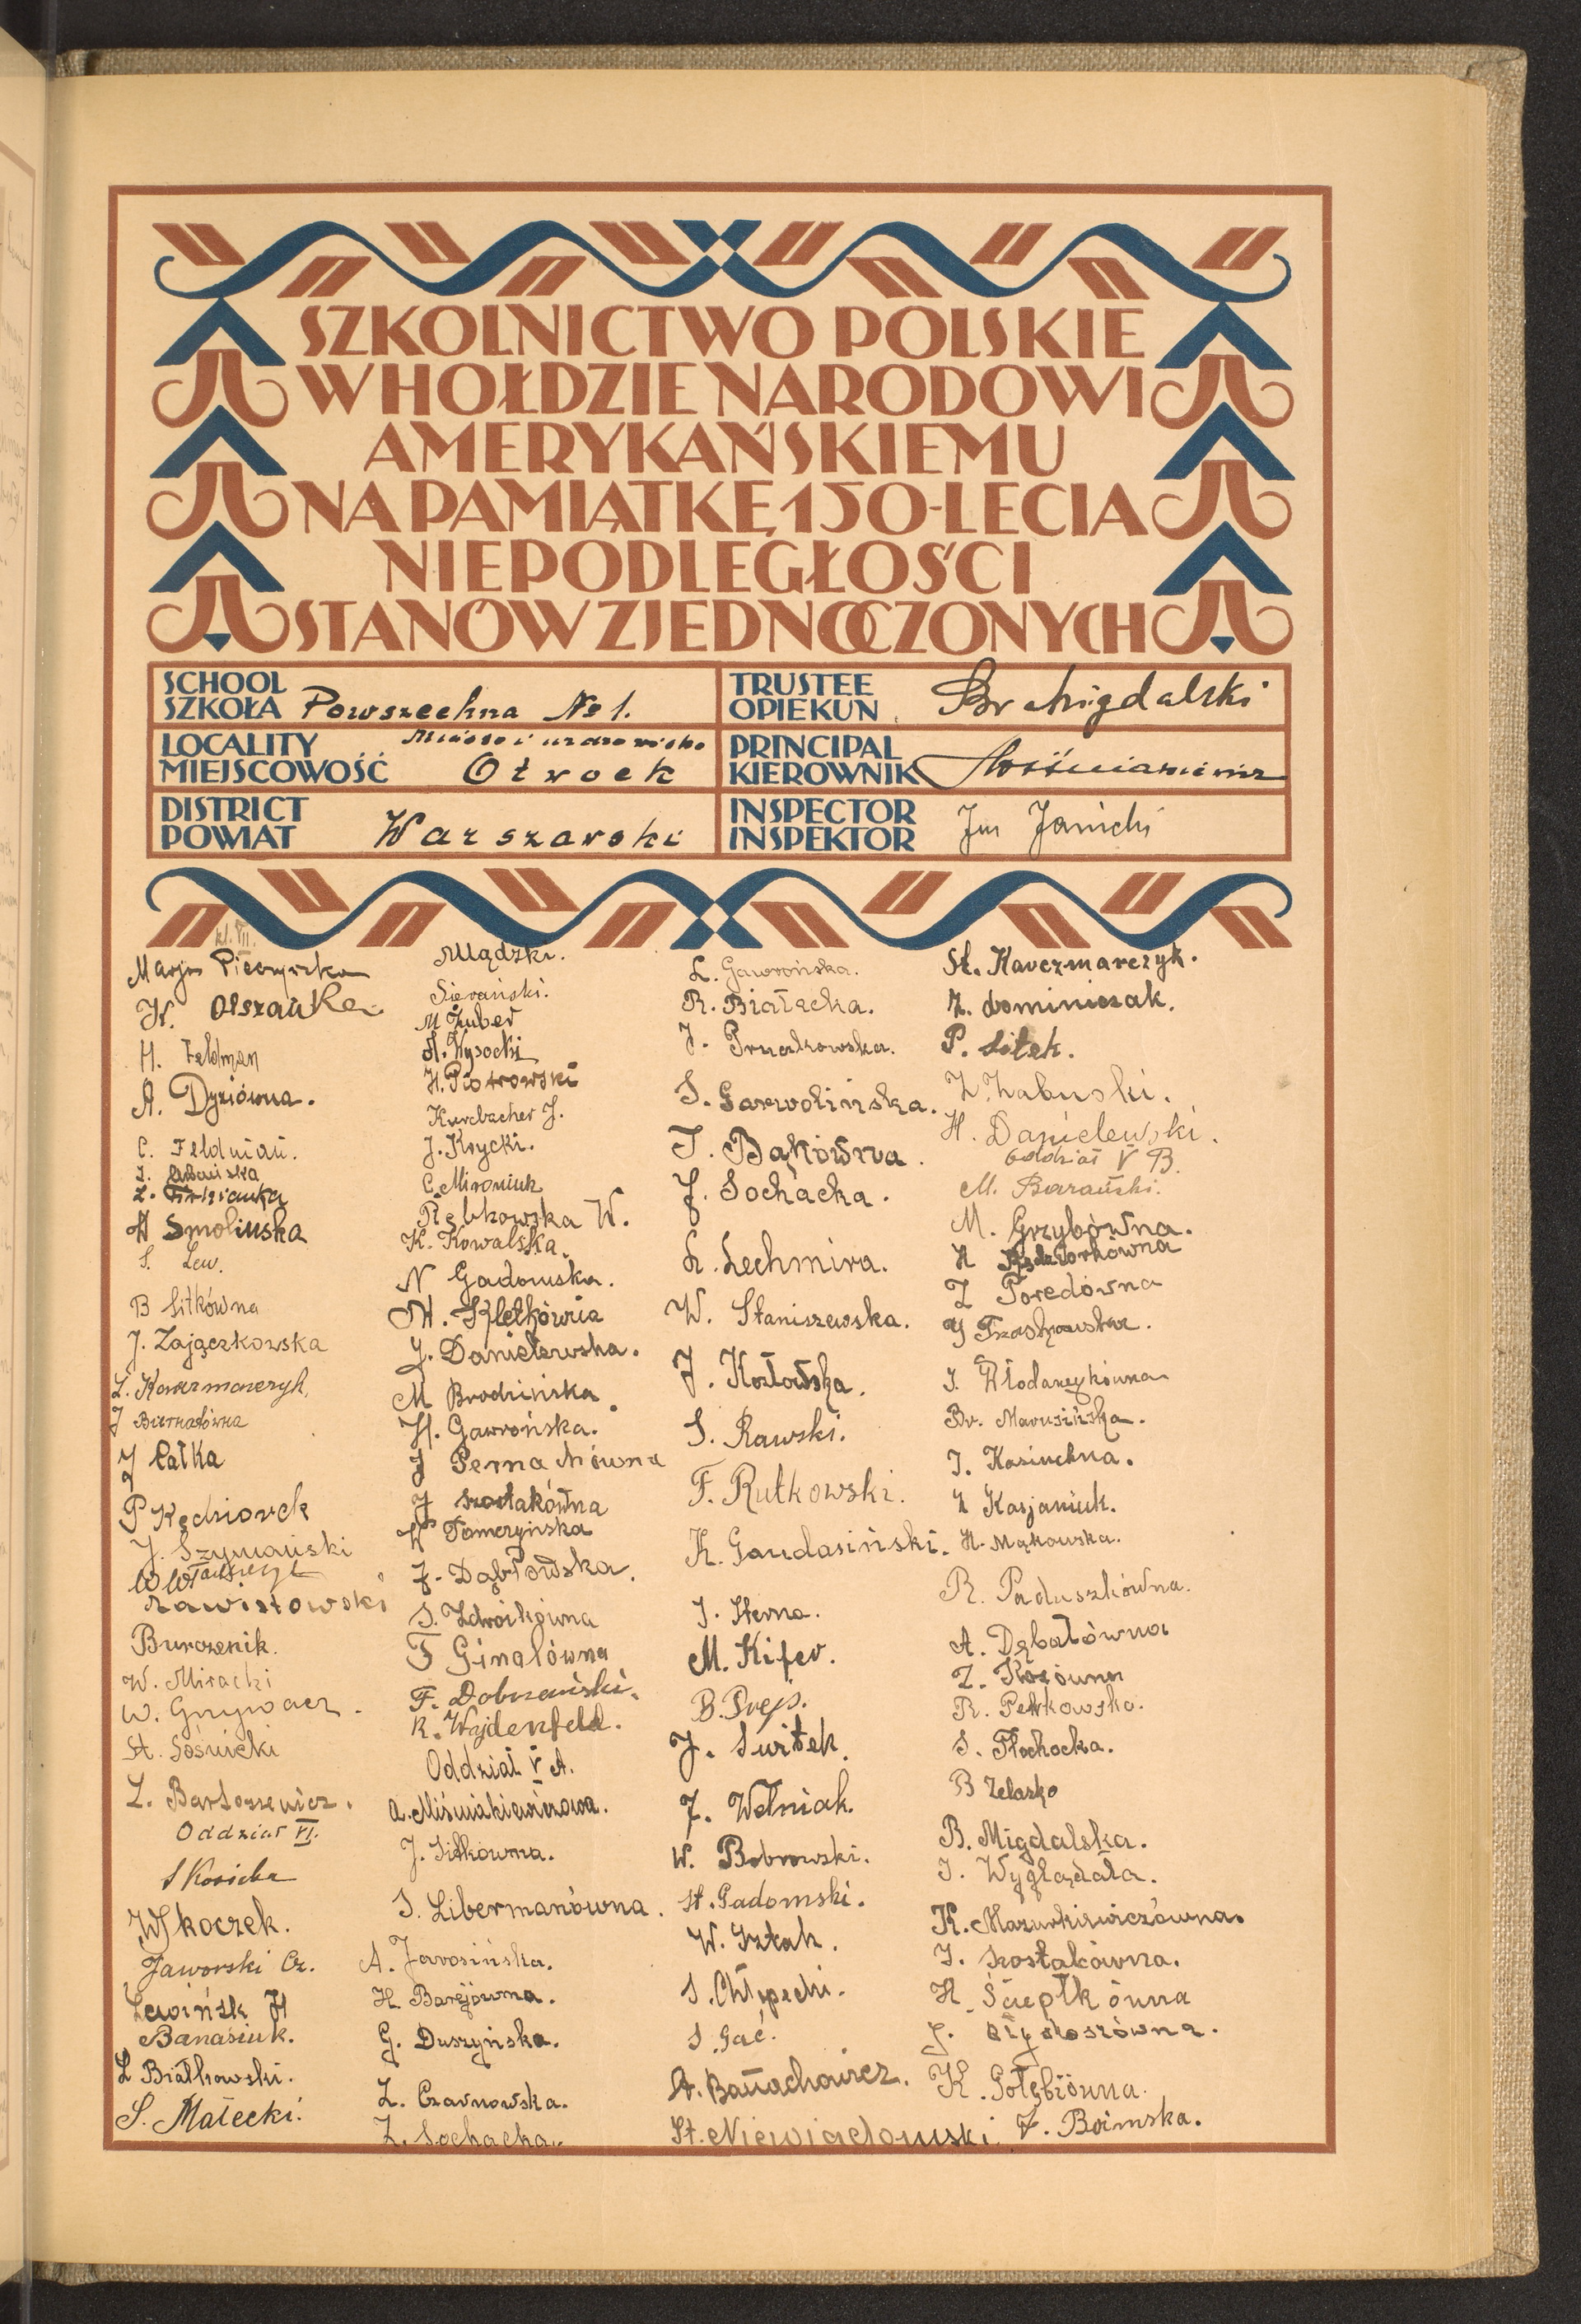 SZKOLNICTWO POLSKIE
W HOŁDZIE NARODOWI
AMERYKAŃSKIEMU
NA PAMIĄTKĘ 150-LECIA
NIEPODLEGŁOŚCI
STANÓW ZJEDNOCZONYCH
SCHOOL
SZKOŁA Powszechna No 1.
TRUSTEE
OPIEKUN Br Migdalski
LOCALITY
MIEJSCOWOŚĆ Otwock
PRINCIPAL
KIEROWNIK
DISTRICT
POWIAT Warszawski
INSPECTOR
INSPEKTOR Janicki
kl. VII.
Marja
W. Olszanka
H. Feldman
A. Dyziówna.
C. Feldman.
H Smolinska
S. Lew.
B Sitkówna
J. Zajączkowska
Z. Kaczmarczyk
J Biernatówna
J Pałka
P Kędziorek
J. Szymański
W Włodarczyk
Zawistowski
Burczenik.
W. Miracki
W. Grzywacz.
St. Sośnicki
Z. Bartoszewicz.
Oddział VI.
S Kosicka
W Skoczek.
Jaworski Cz.
Lewińsk H
Banasiuk.
L Białkowski.
S. Małecki.
Mądzki.
Sierański.
M Zuber
A. Wysocki
H. Piotrowski
Kurcbacher J.
J. Krycki.
C. Mironiuk
Rębkowska W.
K. Kowalska.
N Gadomska.
M. Kletkówna
J. Danielewska.
M Brodzińska.
H. Gawrońska.
J Pernachówna
J Szostakówna
W Tomczyńska
J. Dąbrowska.
S. Zdrojkówna
F Ginalówna
F. Dobrzański.
R. Wajdenfeld.
Oddział V A.
A. Miśniakiewiczowa.
J. Sitkówna.
S. Libermanówna.
A. Jarosińska.
H Barejówna.
G. Duszyńska.
Z. Czarnowska.
Z. Sochacka.
L. Gawrońska.
R. Białecka.
J. Pruszkowska.
S. Garwolińska.
T. Bąkówna.
J. Sochacka.
L. Lechmira.
W. Staniszewska.
J. Kozłowska.
S. Rawski.
F. Rutkowski.
K. Gaudasiński.
J. Sterna.
M. Kifer.
B. Prejs.
J. Świtek.
J. Wełniak.
W. Bobrowski.
St. Gadomski.
W. Sztak.
S. Chłopecki.
S. Gać.
A. Banachowicz.
St. Niewiadomski.
St. Kaczmarczyk.
Z. Dominiczak.
P. Sitek.
Z. Zabuski.
H. Danielewski.
Oddział V B.
M. Barański.
M. Grzybówna.
H Kędziorkówna
Z Poredówna
J. Włodarczykówna
Br. Marusińska.
J. Kasiuchna.
Z Kasjaniuk.
H. Mąkowska.
R. Paduszkówna.
A. Dębałówna
Z. Kozówna
R. Petkowska.
S. Płochocka.
B Żelazko
B. Migdalska.
J. Wyglądała.
K. Mazurkiewiczówna.
J. Szostakówna.
H. Szczepłkówna
J. Długoszówna.
K. Gołębiówna.
J. Boimska.